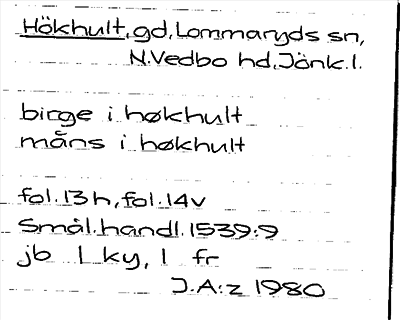 Hökhult, gd, Lommaryds sn,
N. Vedbo hd, Jönk. l.
birge i høkhult
måns i høkhult
fol. 13 h, fol. 14 v
Smål. handl. 1539:9
jb 1 ky, 1 fr
J.A:z 1980